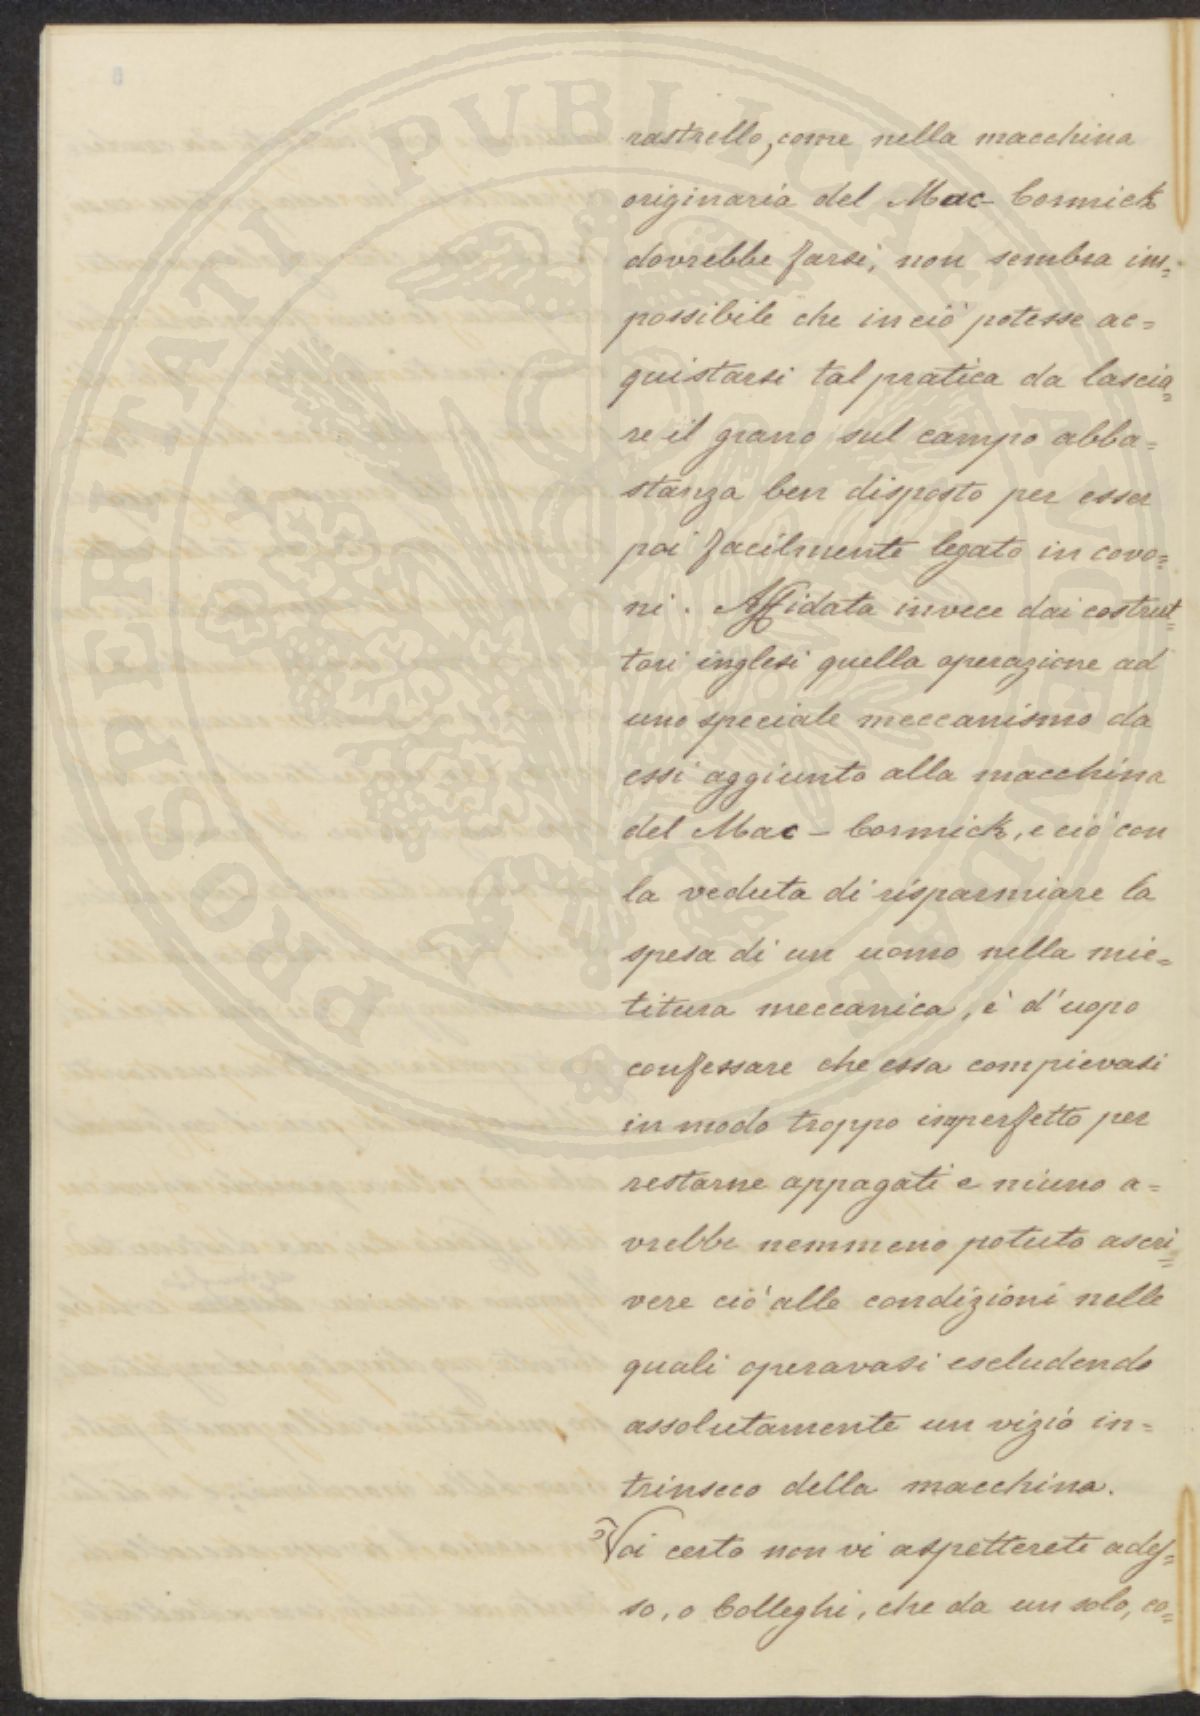 rastrello, come nella macchina
originaria del Mac-Cormick
dovrebbe farsi, non sembra im=
possibile che in ciò potesse ac=
quistarsi tal pratica da lascia=
re il grano sul campo abba=
stanza ben disposto per esser
poi facilmente legato in covo=
ni. Affidata invece dai costrut=
tori inglesi quella operazione ad
uno speciale meccanismo da
essi aggiunto alla macchina
del Mac-Cormick, e ciò con
la veduta di risparmiare la
spesa di un uomo nella mie=
titura meccanica, è d'uopo
confessare che essa compievasi
in modo troppo imperfetto per
restarne appagati e niuno a=
vrebbe nemmeno potuto ascri=
vere ciò alle condizioni nelle
quali operavasi escludendo
assolutamente un vizio in=
trinseco della macchina.
Voi certo non vi aspetterete ades=
so, o Colleghi, che da un solo, co=
PROSPERITATI PUBLICAE AUGENDAE